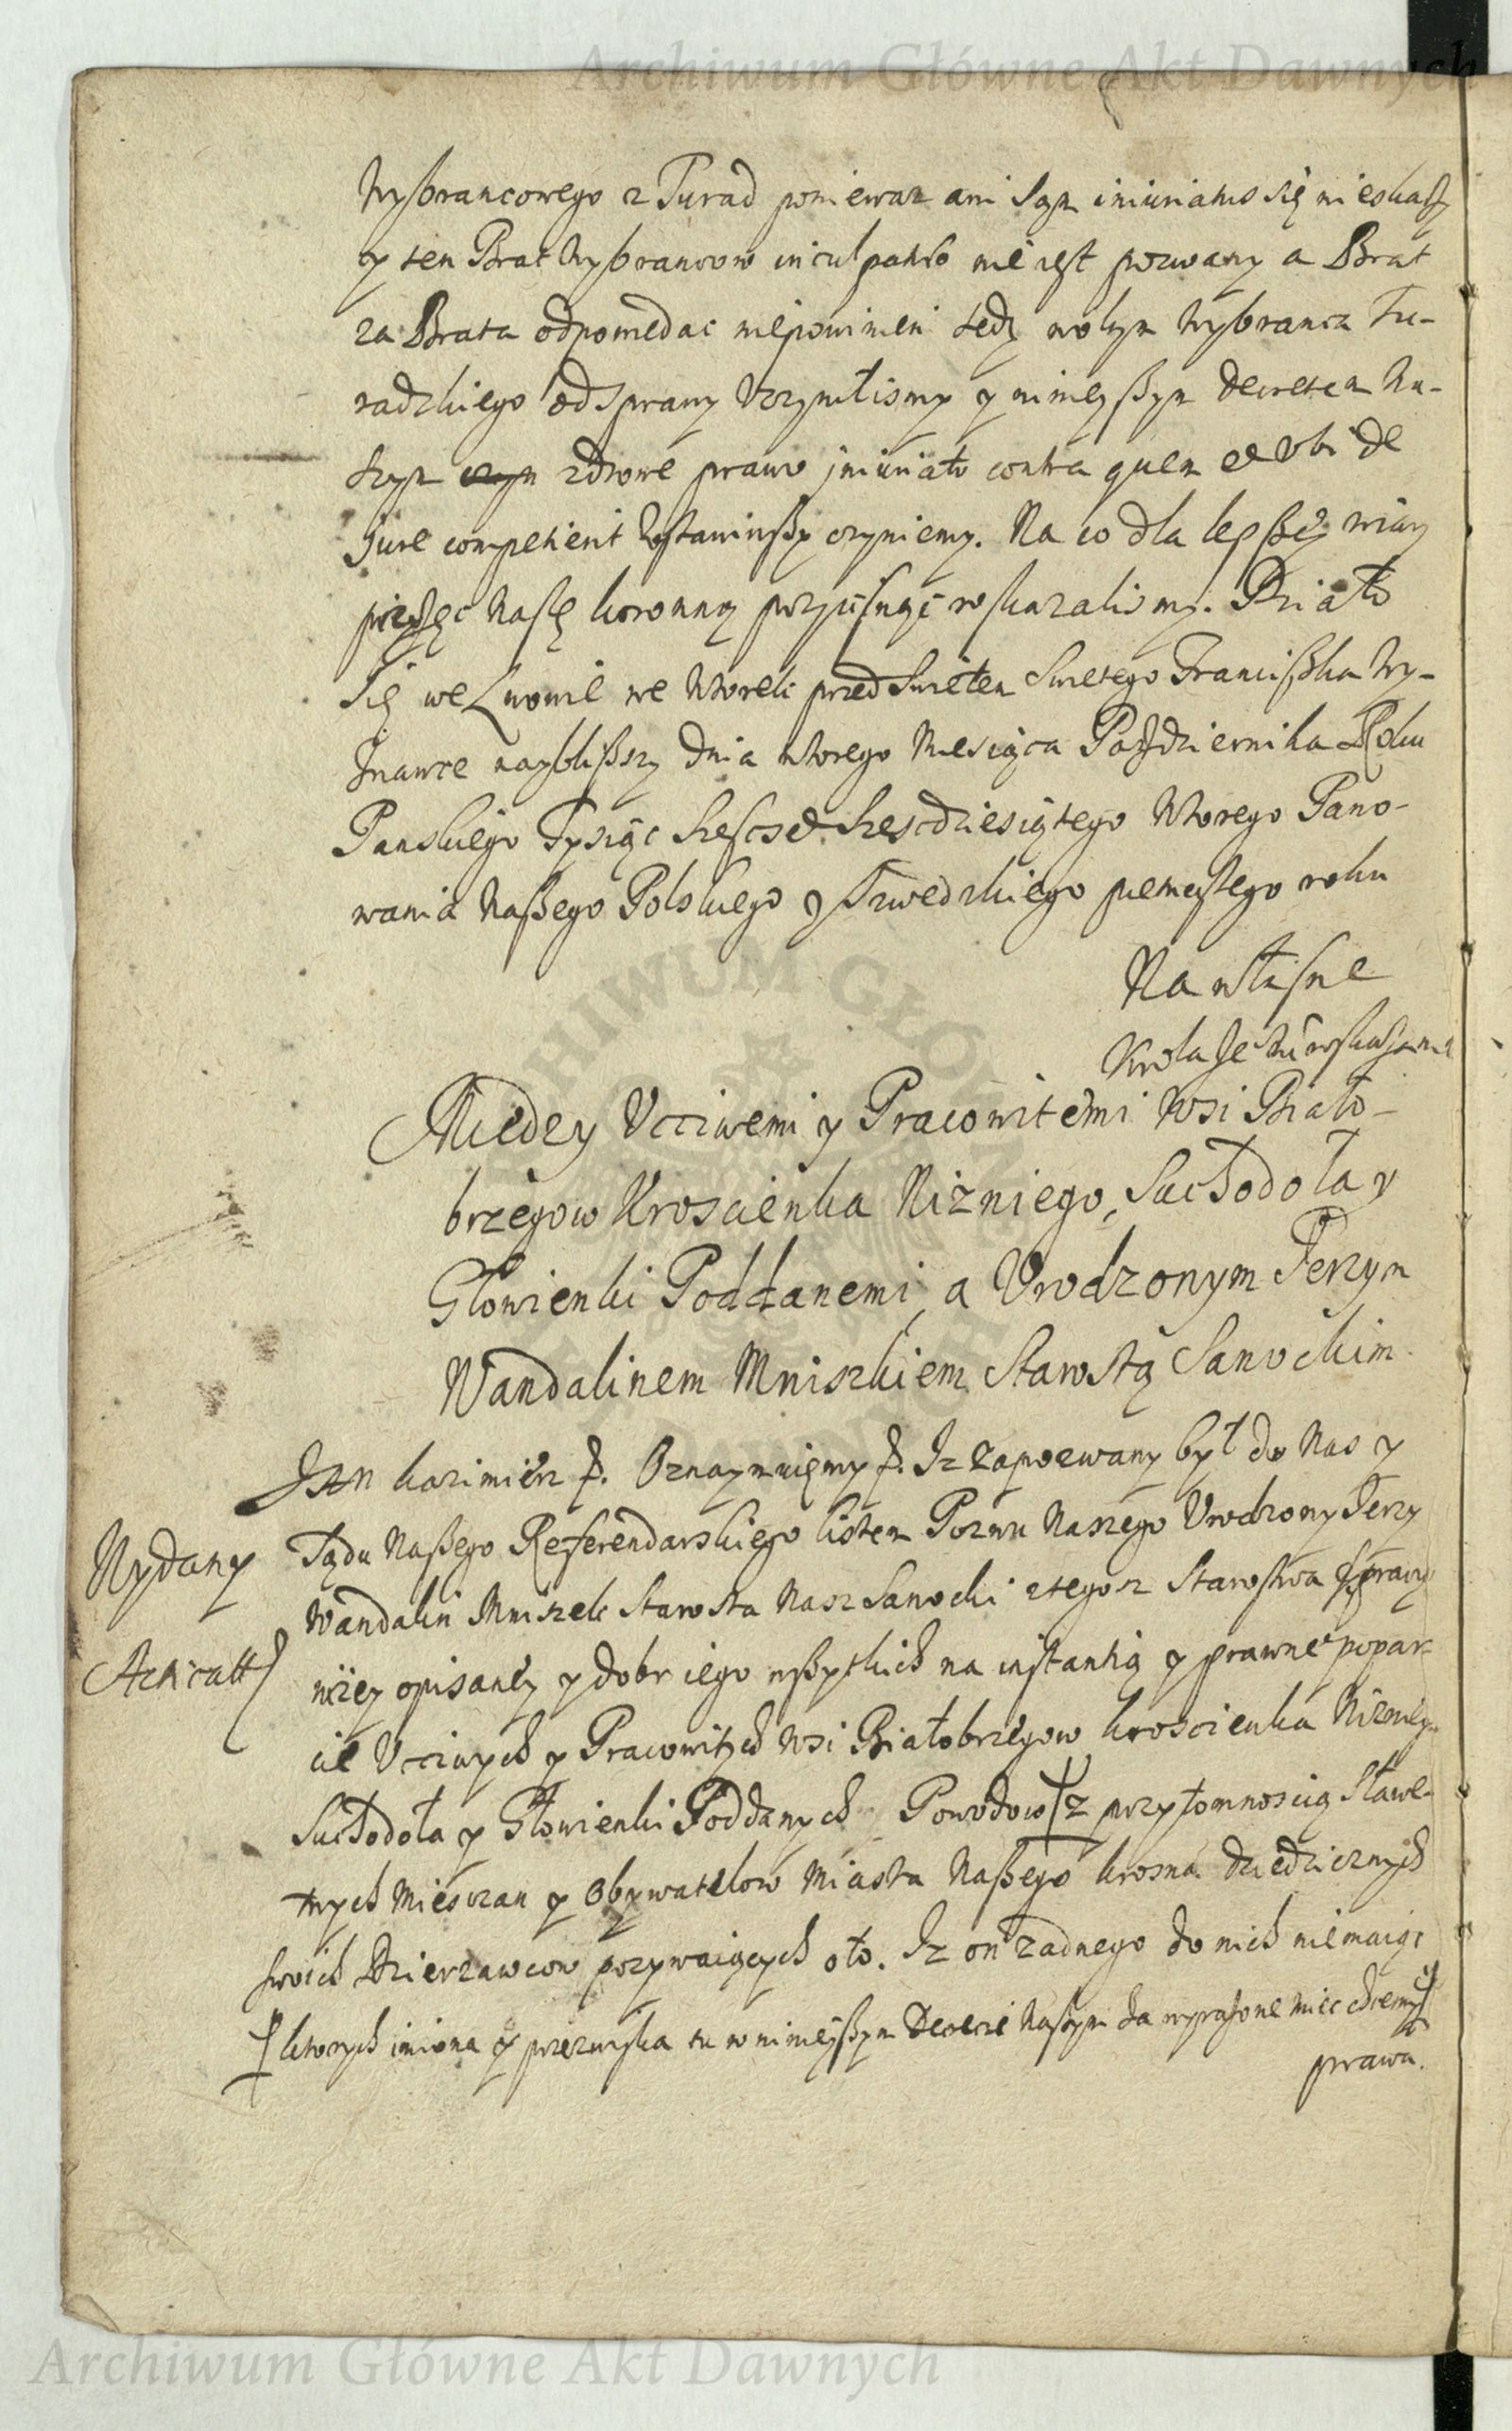 Archiwum Główne Akt Dawnych
Wybrancowego z Turad poniewaz ani Sąm iniuriatus się nieskarzy
y ten Brat Wybrancow inculpatus nie iest pozwany a Brat
za Brata odpowiedac niepowinien tedy wolnym Wybranca Tu-
radzkiego od sprawy Uczynilismy y ninieyszym decretem Na-
szym zdrowe prawo iniuriato contra quem et ubi de
Jure competierit Zostawiwszy czyniemy. Na co dla lepszey wiary
pieczęc Naszę koronną przycisnąc roskazalismy. Działo
się we Lwowie we Wtorek przed Swiętem Swietego Franciszka Wy-
znawce nayblizszy dnia wtorego Miesiąca Pazdziernika Roku
Panskiego Tysiąc Szescset Szescdziesiątego Wtorego Pano-
wania Naszego Polskiego y Szwedzkiego roku
Na własne
Krola Je Mci roskazanie
Miedzy Ucciwemi y Pracowitemi Wsi Biało-
brzegow Kroscienka Nizniego, Suchodoła y
Głowienki Poddanemi, a Urodzonym Jerzym
Wandalinem Mniszkiem Starostą Sanockim.
Jan Kazimierz p. Oznaymuiemy p. Iz Zapozwany był do Nas y
Sądu Naszego Referendarskiego listem Pozwu Naszego Urodzony Jerzy
Wydany
Wandalin Mniszek Starosta Nasz Sanocki z tegosz Starostwa sprawy
Acticatt
nizey opisaney y dobr iego wszytkich na instantią y prawne popar-
cie Ucciwych y Pracowitych Wsi Białobrzegow Kroscienka Nizniego
Suchodoła y Głowienki Poddanych Powodow z przytomnoscią Sławe-
tnych Miesczan y Obywatelow Miasta Naszego Krosna dziedzicznych
swoich Dzierzawcow pozywaiących oto. Iz on zadnego do nich niemaiąc
ktorych imiona y przezwiska tu w ninieyszym Decrecie Naszym za wyrazone miec chcemy
prawa.
Archiwum Główne Akt Dawnych